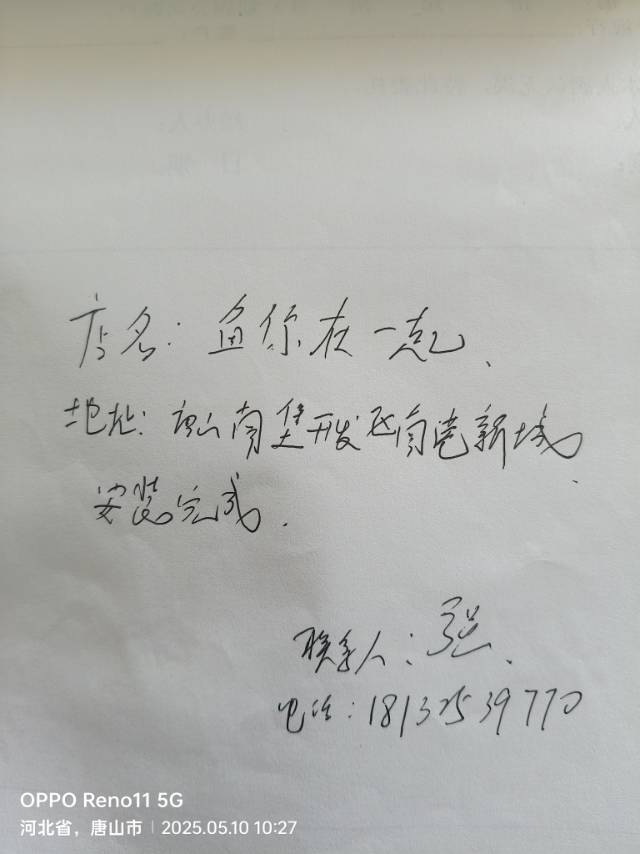 店名：鱼你在一起、
地址：唐山南堡开发区南堡新城、
安装完成.
联系人：强、
电话：18132539770
OPPO Reno11 5G
河北省，唐山市 | 2025.05.10 10:27